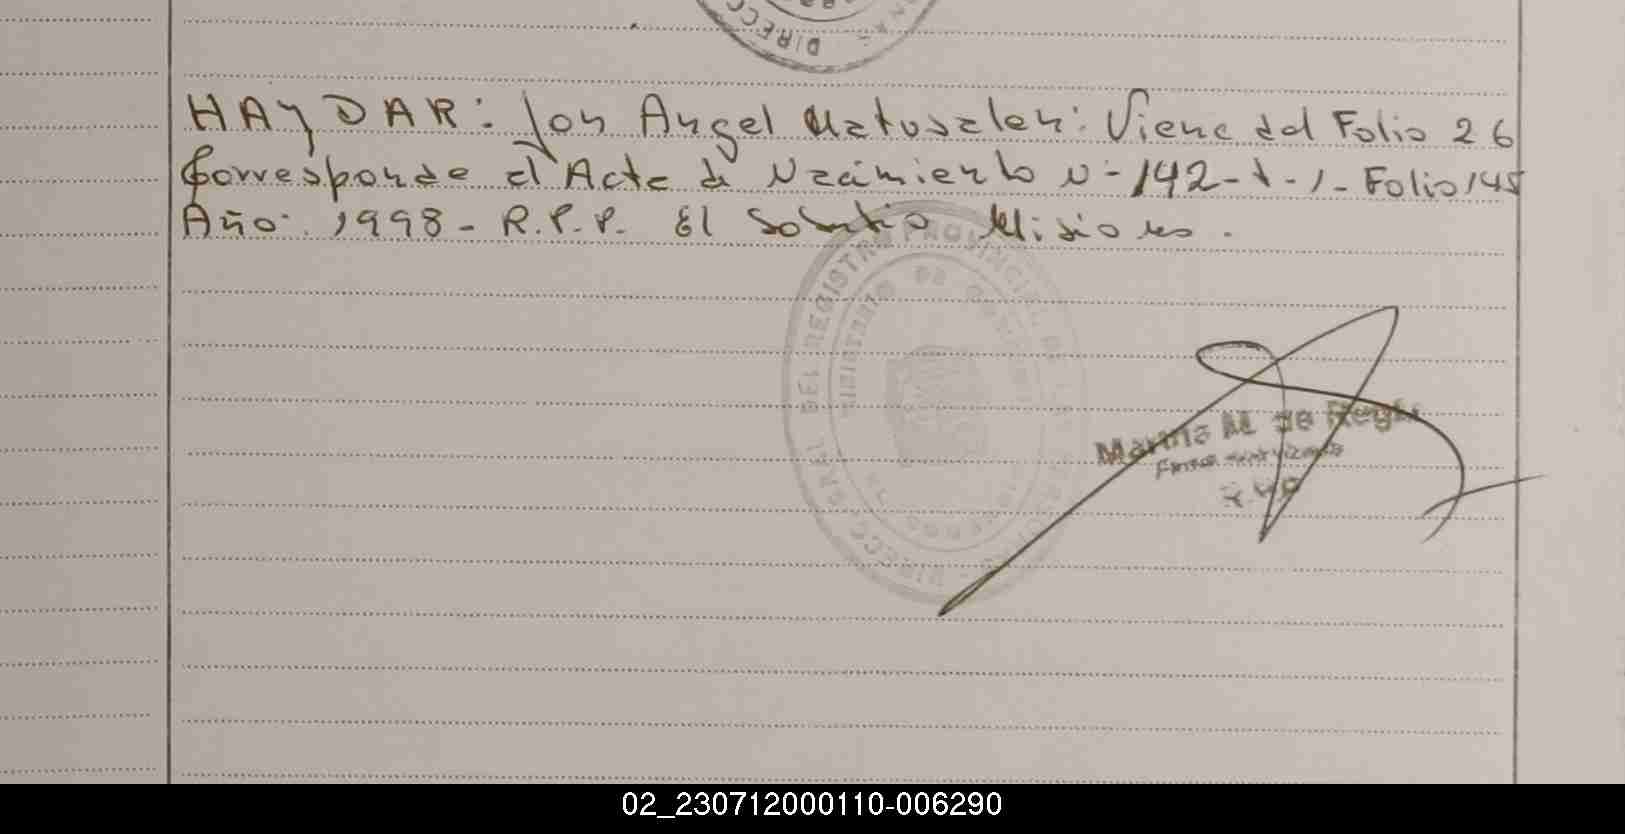 DIRECC
HAyDAR: Jon Angel Matusalen: Viene del Folio 26
Corresponde al Acta de Nacimiento N- 142-t-1- Folio 145
Año: 1998- R.P.P. El Soberbio Misiones.
DIRECC GRAL DEL REGISTRO PROVINCIAL DE LA
MINISTERIO DE GOBIERNO
Marina M. de
02_230712000110-006290